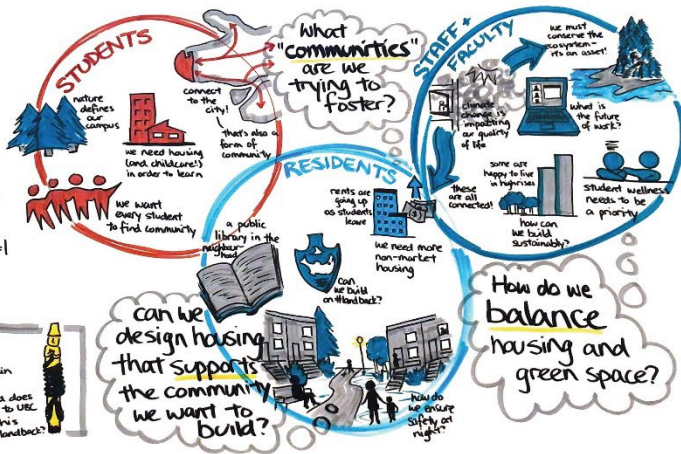 STUDENTS
nature
defines
our
campus
we need housing
(and childcare!)
in order to learn
we want
every student
to find community
connect
to the
city!
that's also a
form of
community
What
"communities"
are we
trying to
foster?
STAFF +
FACULTY
we must
conserve the
ecosystem-
it's an asset!
climate
change is
impacting
our quality
of life
what is
the future
of work?
these
are all
connected!
some are
happy to live
in highrises
how can
we build
sustainably?
student wellness
needs to be
a priority
RESIDENTS
rents are
going up
as students
leave
we need more
non-market
housing
a public
library in the
neighbour-
hood
can
we build
on #landback?
how do
we ensure
safety at
night?
can we
design housing
that supports
the community
we want to
build?
How do we
balance
housing and
green space?
in
does
to UBC
this
landback?